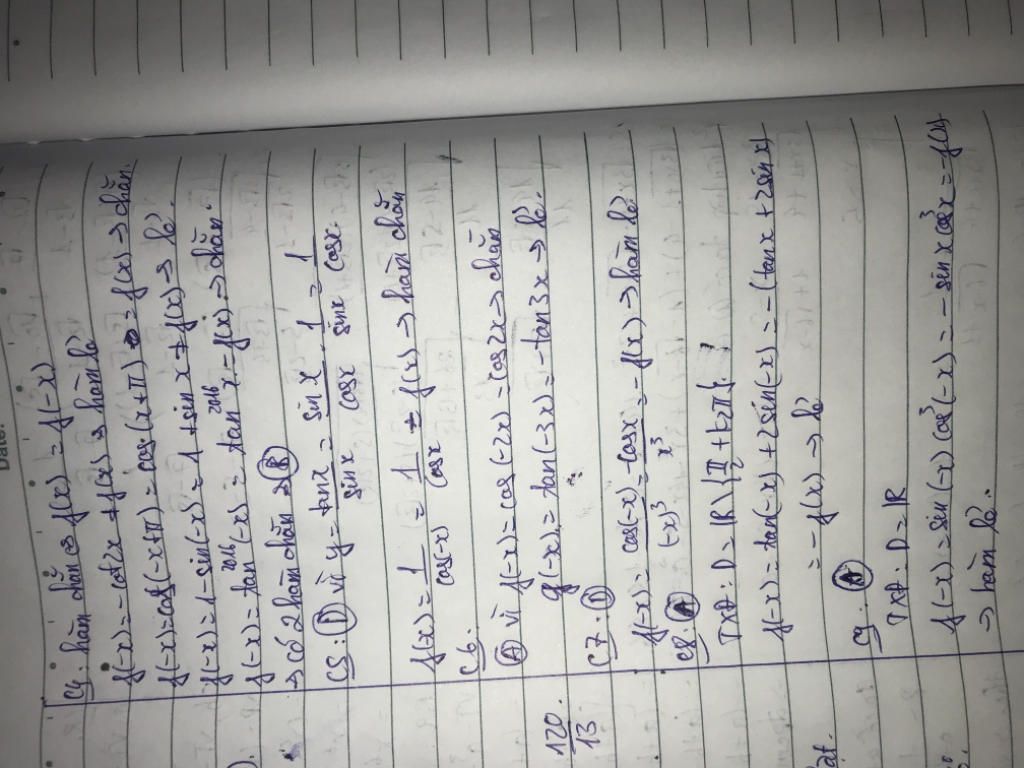 Date:
C4: hàm chẵn ⇔ f(x) = f(-x)
f(-x) = -cot2x ≠ f(x) → hàm lẻ
f(-x) = cos(-x+π) = cos(x+π) = f(x) → chẵn.
f(-x) = 1 - sin(-x) = 1 + sinx ≠ f(x) → lẻ.
f(-x) = tan²⁰¹⁶(-x) = tan²⁰¹⁶x = f(x) → chẵn.
→ có 2 hàm chẵn → (B)
C5: (D) vì y = tanx/sinx = sinx/cosx · 1/sinx = 1/cosx
f(x) = 1/cos(-x) = 1/cosx = f(x) → hàm chẵn
C6.
(A) vì f(-x) = cos(-2x) = cos2x → chẵn
g(-x) = tan(-3x) = -tan3x → lẻ.
120/13
C7. (D)
f(-x) = cos(-x)/(-x)³ = -cosx/x³ = -f(x) → hàm lẻ
C8. (A)
TXĐ: D = R\{π/2 + k2π}
f(-x) = tan(-x) + 2sin(-x) = -(tanx + 2sinx)
= -f(x) → lẻ
C9. (A)
TXĐ: D = R
f(-x) = sin(-x) cos³(-x) = -sinx cos³x = -f(x).
→ hàm lẻ.